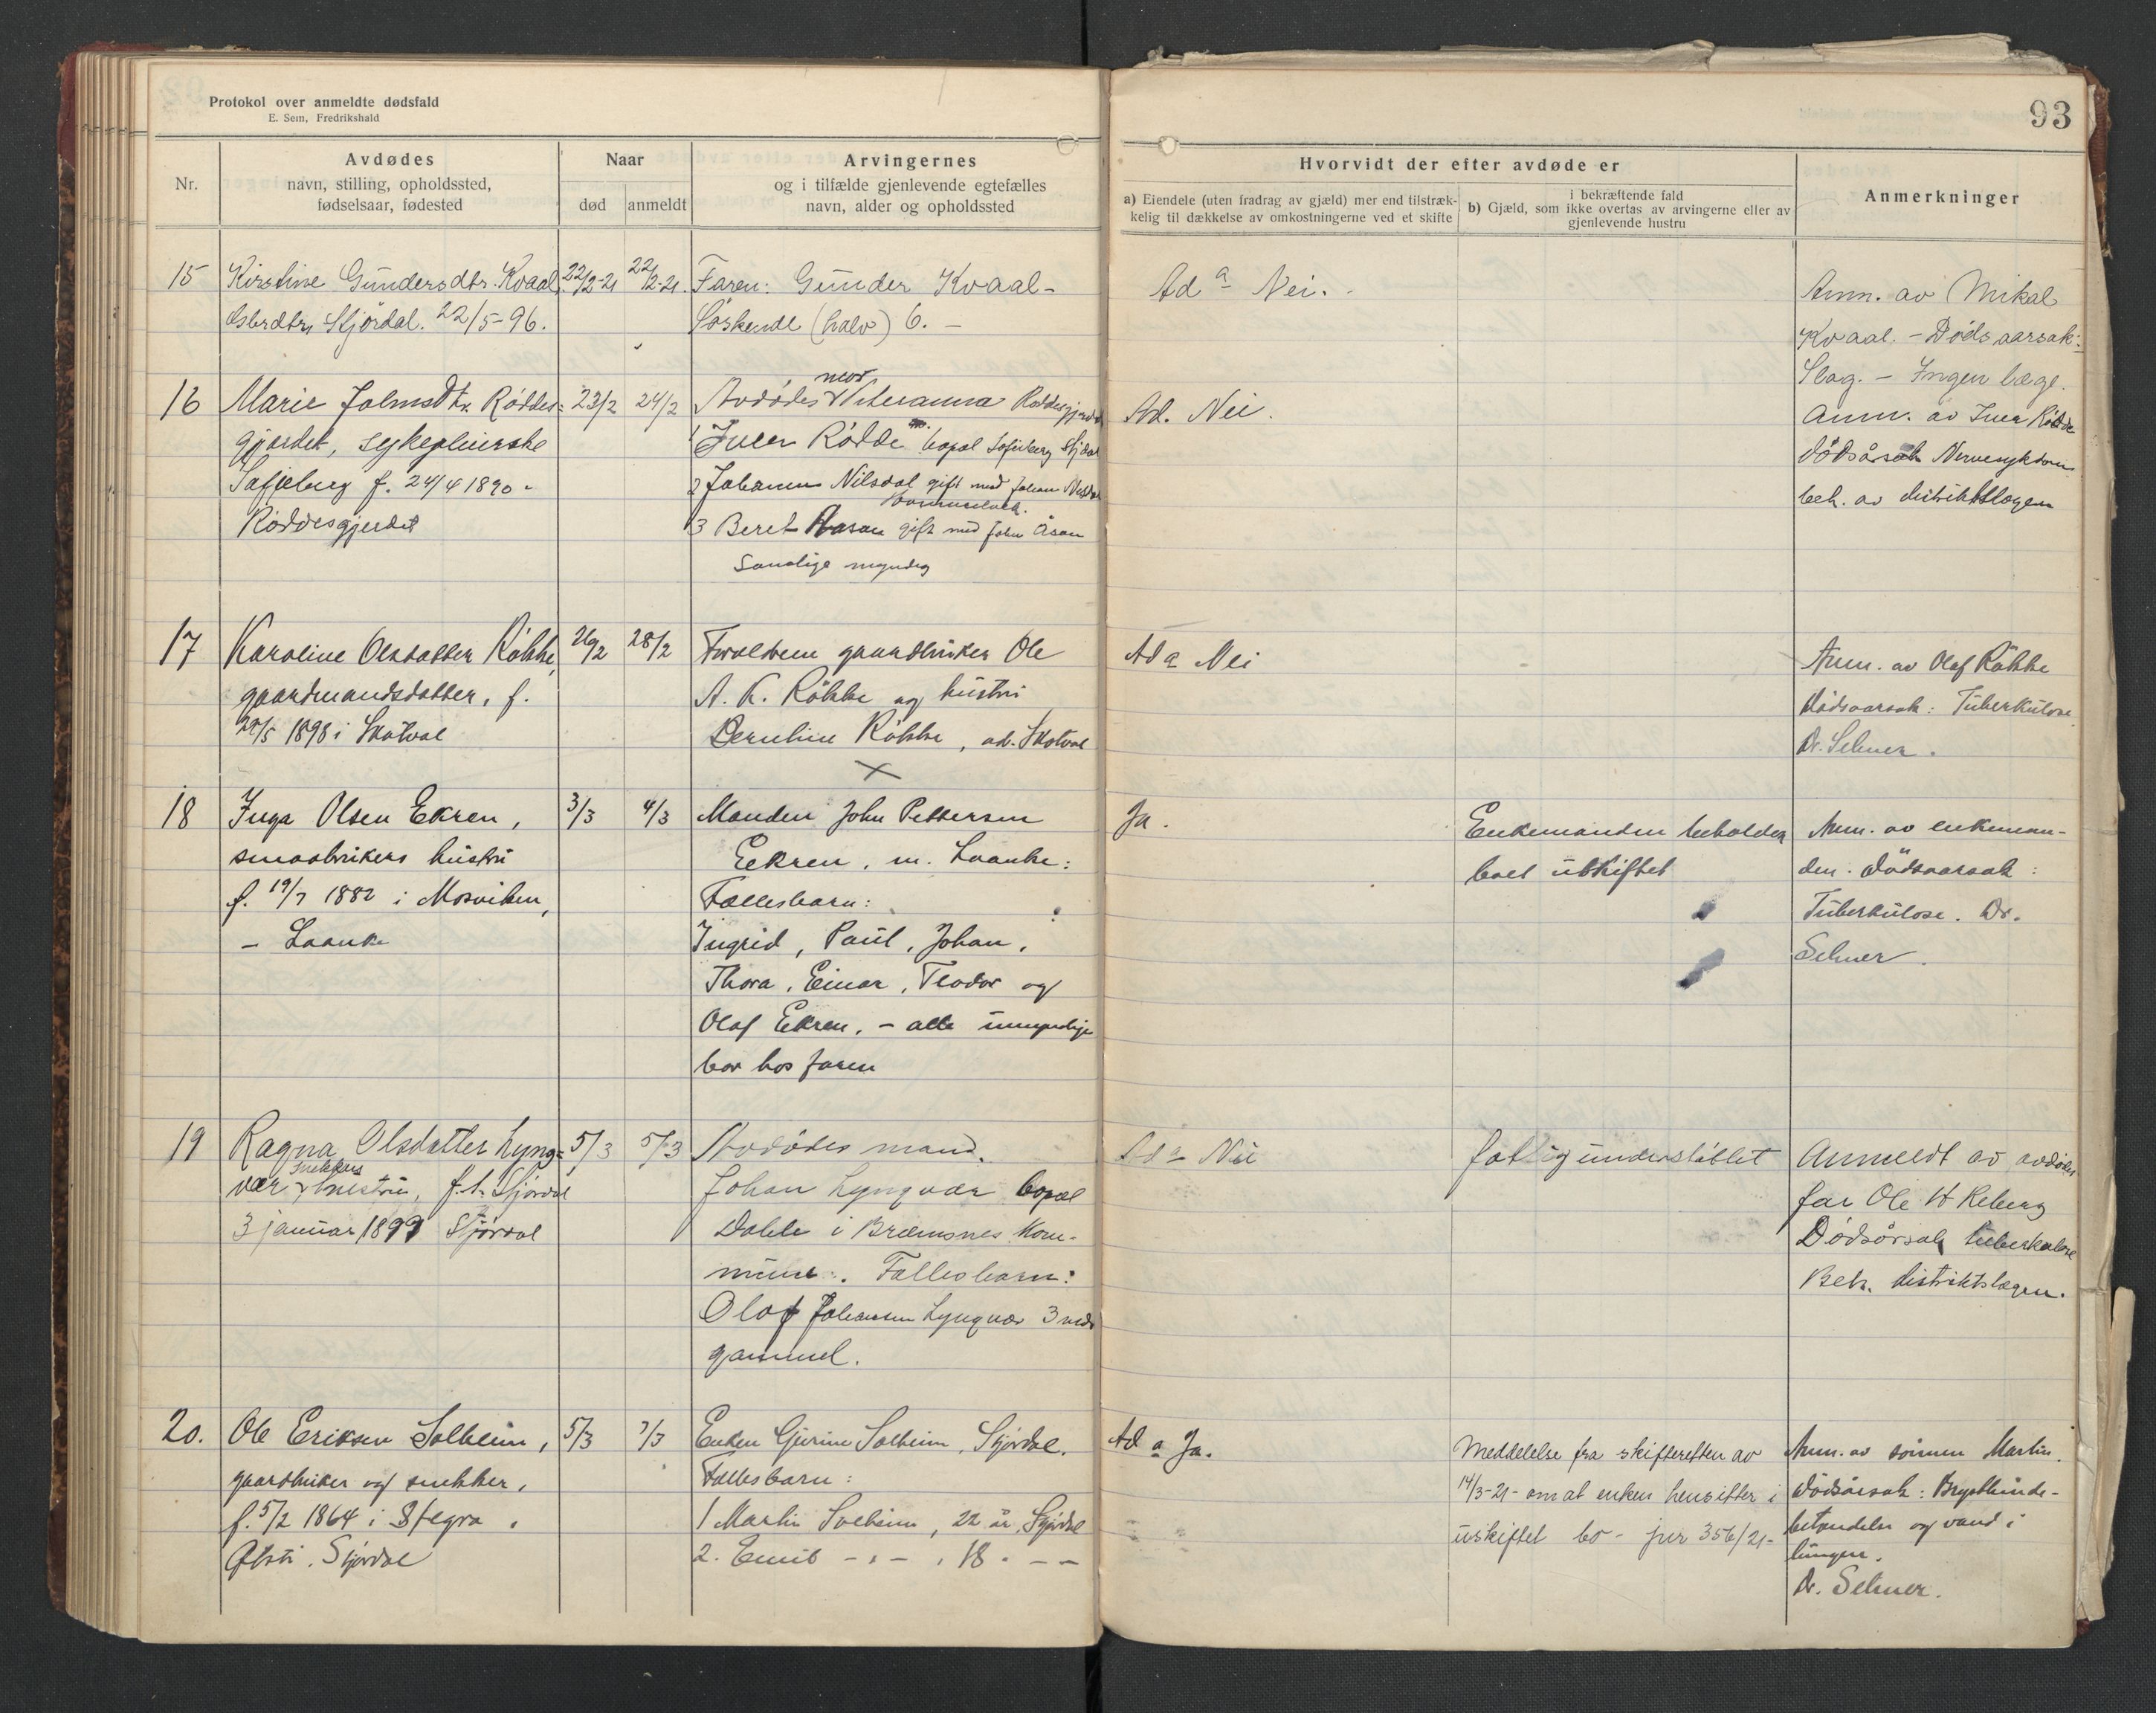 Protokol over anmeldte dødsfald
E. Sem, Fredrikshald
93
Nr.
Avdødes
navn, stilling, opholdssted,
fødselsaar, fødested
Naar
død
anmeldt
Arvingernes
og i tilfælde gjenlevende egtefælles
navn, alder og opholdssted
Hvorvidt der efter avdøde er
a) Eiendele (uten fradrag av gjæld) mer end tilstræk-
kelig til dækkelse av omkostningerne ved et skifte
i bekræftende fald
b) Gjæld, som ikke overtas av arvingerne eller av
gjenlevende hustru
Anmerkninger
15
Kirstine Gundersdtr. Kvaal
Stjørdal. 22/5-96.
22/2-21
22/2-21.
Faren: Gunder Kvaal -
Søskende (halv) 6. -
Ad a Nei.
Anm. av Mikal
Kvaal. - Dødsaarsak:
Slag. - Ingen læge.
16
Marie Johnsdtr. Røddes=
gjerdet, sykepleierske
f. 24/4 1890 -
Røddesgjerdet
23/2
24/2
Avdødes mor Røddesgjerdet
1 Iver Rødde bopæl Stjørdal
2 Johanna Nilsdal gift med Johan
3 Beret Aasan gift med John Åsan
Samtlige myndig
Ad. Nei.
Anm. av Iver Rødde
Dødsårsak Nervesykdom
beh. av distriktslægen
17
Karoline Olsdatter Røkke,
gaardmandsdatter, f.
1898 i Skatval
26/2
28/2
Forældrene gaardbruker Ole
A. K. Røkke og hustru
Bernhine Røkke, ad. Skatval
Ad a Nei
Anm. av Olaf Røkke
Dødsaarsak: Tuberkulose.
Dr. Selmer.
18
Inga Olsen Ekren,
smaabrukers hustru
f. 19/7 1882 i Mosviken,
- Laanke
3/3
4/3
Manden John Pettersen
Eekren, m. Laanke:
Fællesbarn:
Ingrid, Paul, Johan,
Thora, Einar, Teodor og
Olaf Ekren. - alle umyndige
bor hos faren
Ja.
Enkemanden beholder
boet uskiftet
Anm. av enkeman-
den. Dødsaarsak:
Tuberkulose. Dr.
Selmer.
19
Ragna Olsdatter Lyng=
vær snekkers hustru, f. i. Stjørdal
3 januar 1899 Stjørdal
5/3
5/3
Avdødes mand.
Johan Lyngvær bopæl
Dahle i Bremsnes Kom-
mune. Fællesbarn:
Olaf Johansen Lyngvær 3 mdr
gammel.
Ad a Nei
fattigunderstøttet
Anmeldt av avdødes
far Ole H Reberg
Dødsårsak tuberkulose
Beh. distriktslægen.
20.
Ole Eriksen Solheim,
gaardbruker og snekker,
f. 5/2 1864 i Stegra.
Stjørdal
5/3
7/3
Enken Gjurine Solheim, Stjørdal.
Fællesbarn:
1 Martin Solheim, 22 år, Stjørdal
2. Emil - " - , 18 " - -
Ad a Ja.
Meddelelse fra skifteretten av
14/3-21- om at enken hensitter i
uskiftet bo - jnr 356/21-
Anm. av sønnen Martin.
Dødsårsak: Brysthinde-
betændelse og vand i
lungen.
Dr. Selmer.